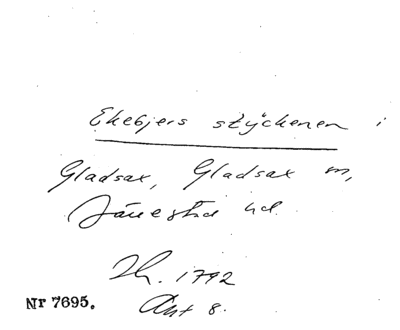 Ekebjers styckenen i
Gladsax, Gladsax m,
Järrestad hd.
Th. 1792
Akt 8.
Nr 7695.